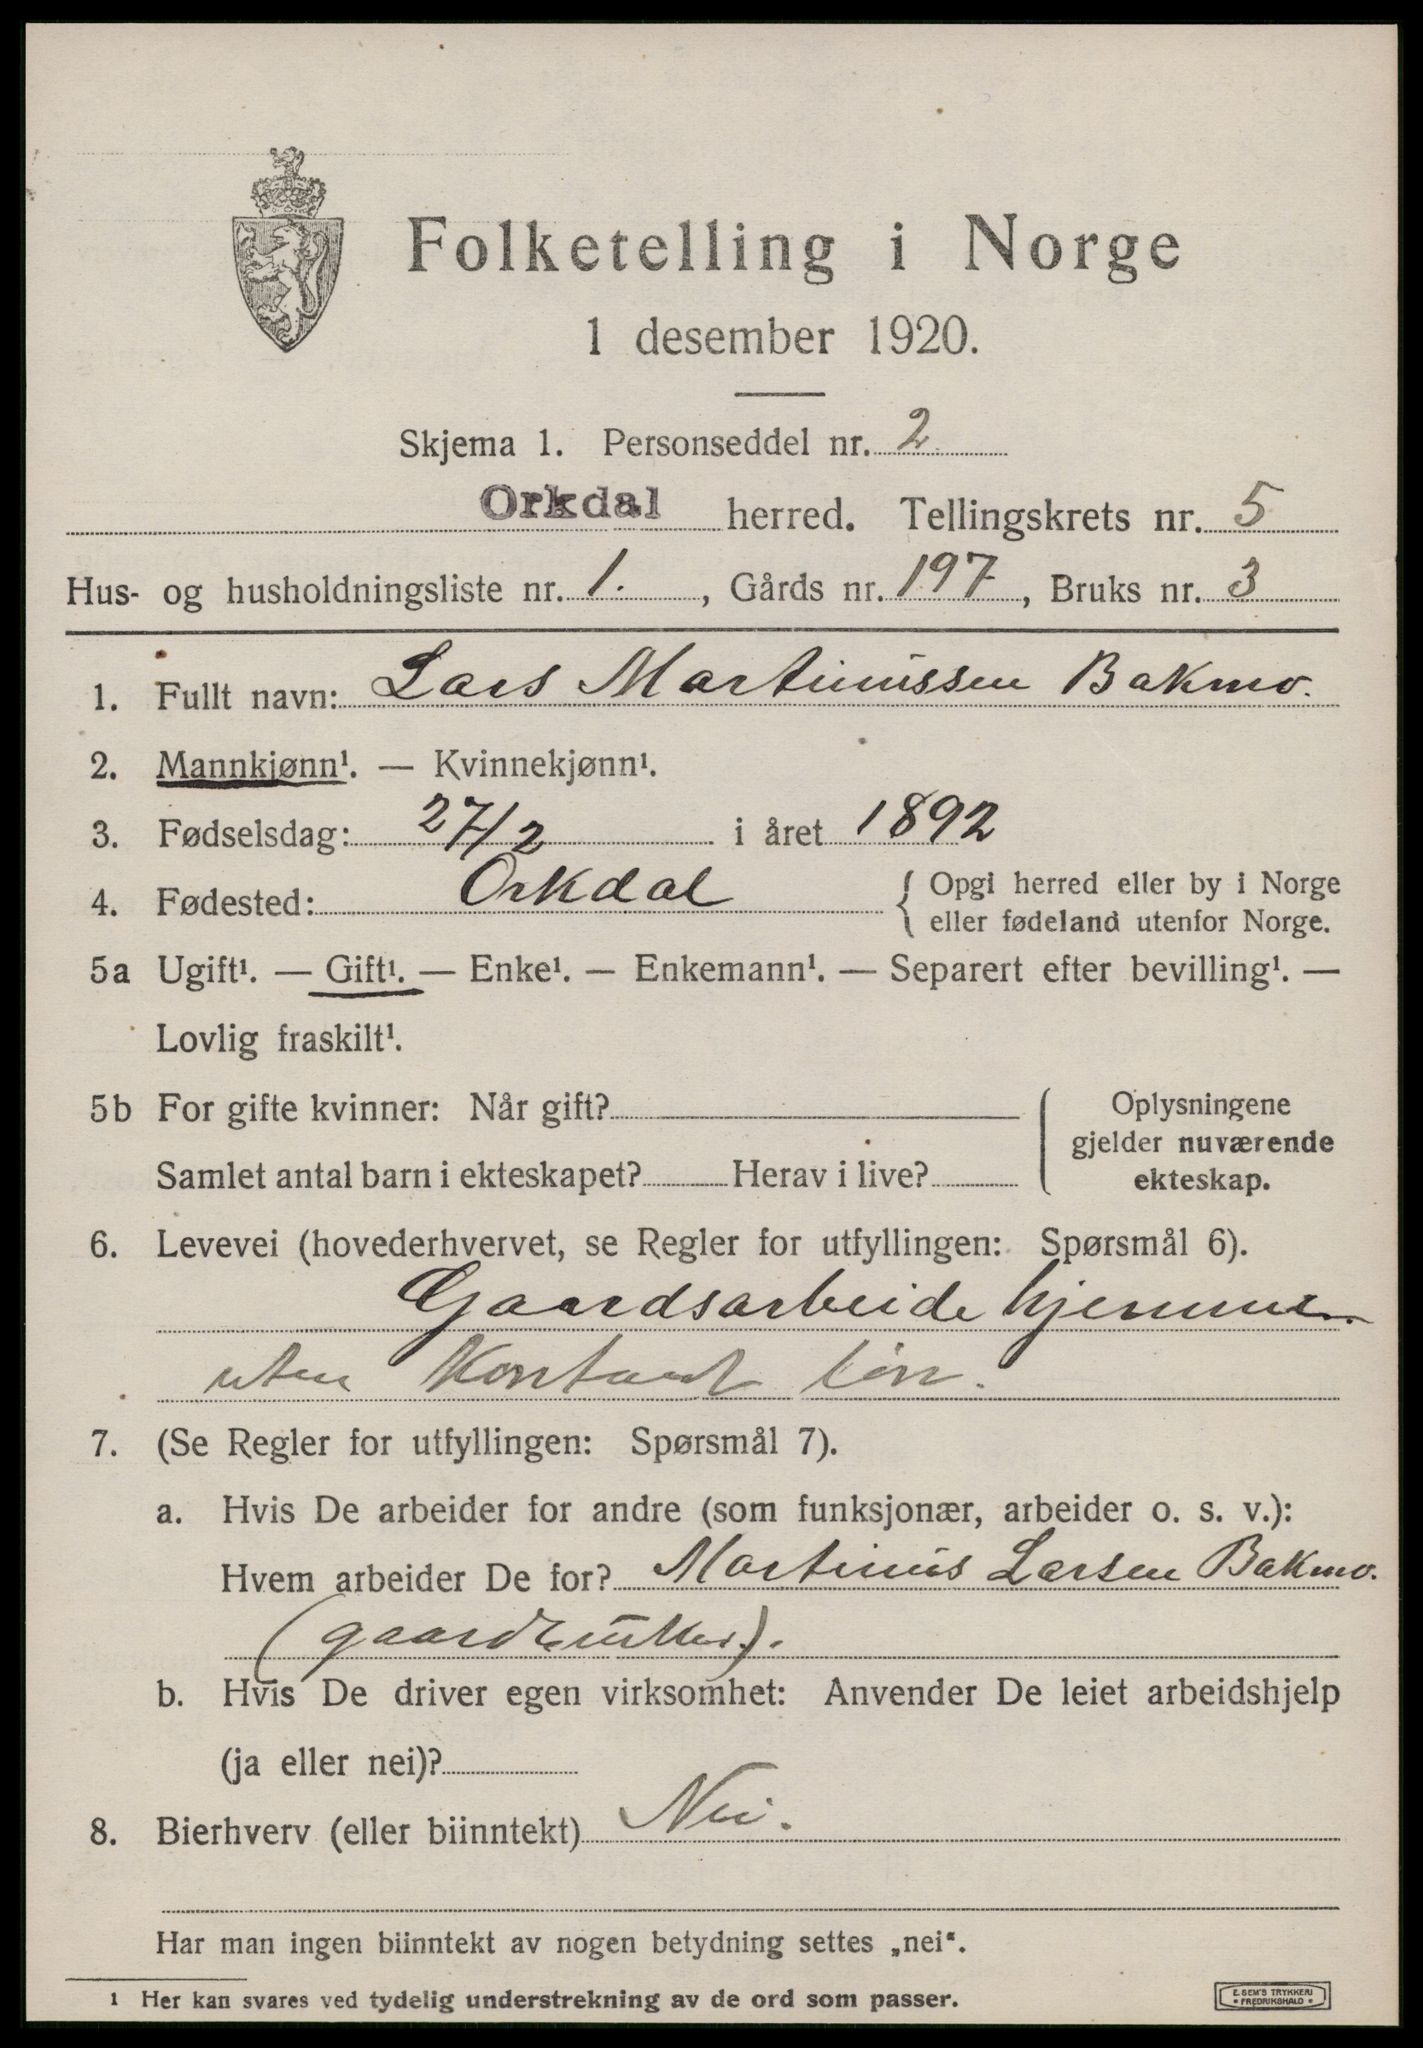 Folketelling i Norge
1 desember 1920.
Skjema 1. Personseddel nr. 2
Orkdal herred. Tellingskrets nr. 5
Hus- og husholdningsliste nr. 1. , Gårds nr. 197 , Bruks nr. 3
1. Fullt navn: Lars Martinussen Bakmo.
2. Mannkjønn¹. — Kvinnekjønn¹.
3. Fødselsdag: 27/2 i året 1892
4. Fødested: Orkdal { Opgi herred eller by i Norge
eller fødeland utenfor Norge.
5a Ugift¹. — Gift¹. — Enke¹. — Enkemann¹. — Separert efter bevilling¹. —
Lovlig fraskilt¹.
5b For gifte kvinner: Når gift?
Samlet antal barn i ekteskapet? Herav i live?
Oplysningene
gjelder nuværende
ekteskap.
6. Levevei (hovederhvervet, se Regler for utfyllingen: Spørsmål 6).
Gaardsarbeide hjemme.
uten Kontant lön.
7. (Se Regler for utfyllingen: Spørsmål 7).
a. Hvis De arbeider for andre (som funksjonær, arbeider o. s. v.):
Hvem arbeider De for? Martinus Larsen Bakmo.
(gaardbruker).
b. Hvis De driver egen virksomhet: Anvender De leiet arbeidshjelp
(ja eller nei)?
8. Bierhverv (eller biinntekt) Nei.
Har man ingen biinntekt av nogen betydning settes „nei“.
¹ Her kan svares ved tydelig understrekning av de ord som passer.
E. SEM'S TRYKKERI
• FREDRIKSHALD •